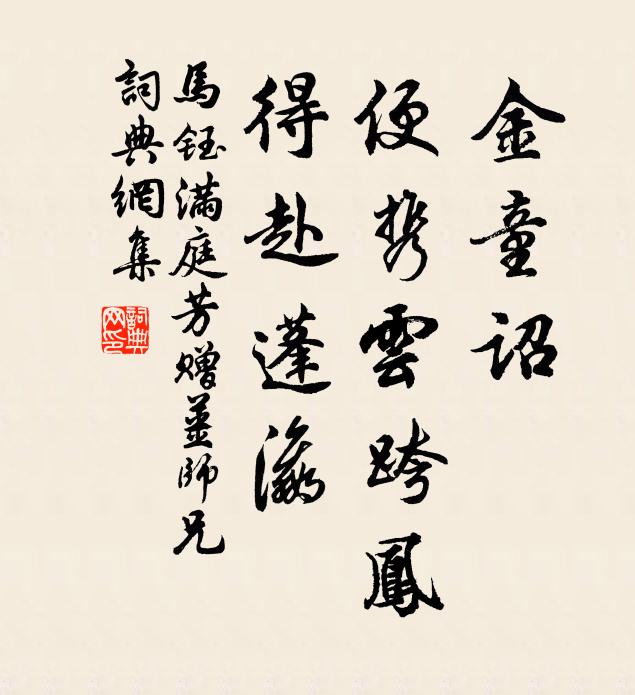 金童詔
便携雲跨鳳
得赴蓬瀛
馬鈺滿庭芳贈薑師兄
詞典網集
詞典网印